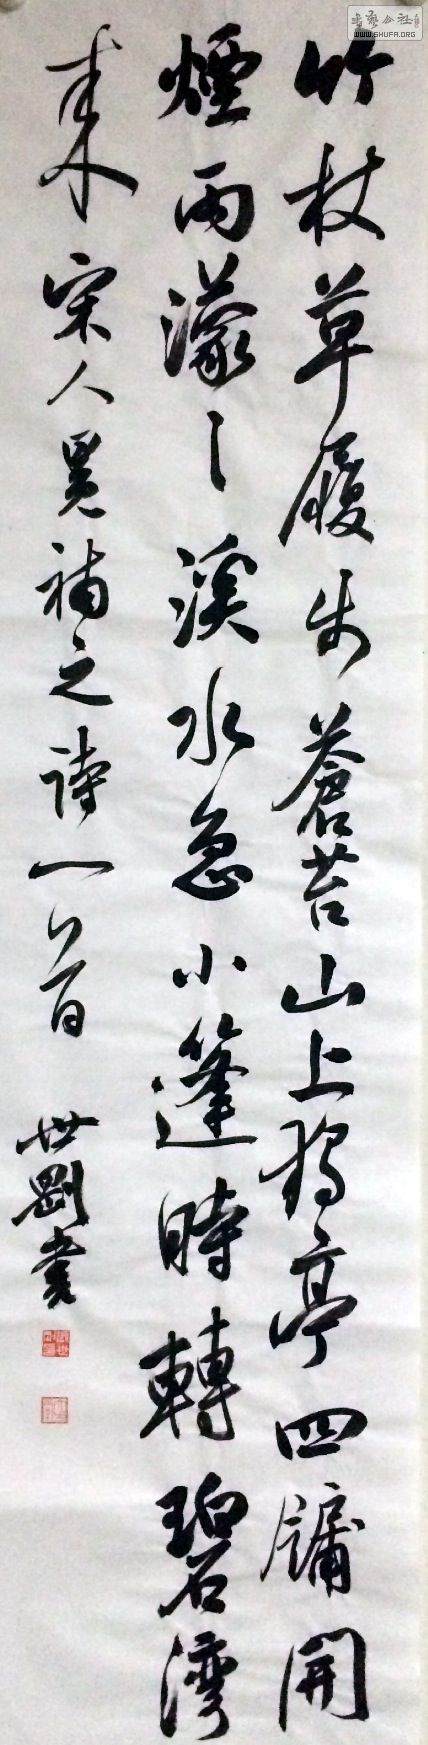 竹杖草履步蒼苔山上孤亭四牖開
煙雨濛〻溪水急小篷時轉碧灣
来宋人晁補之詩一首
世剛書
書藝公社
WWW.SHUFA.ORG